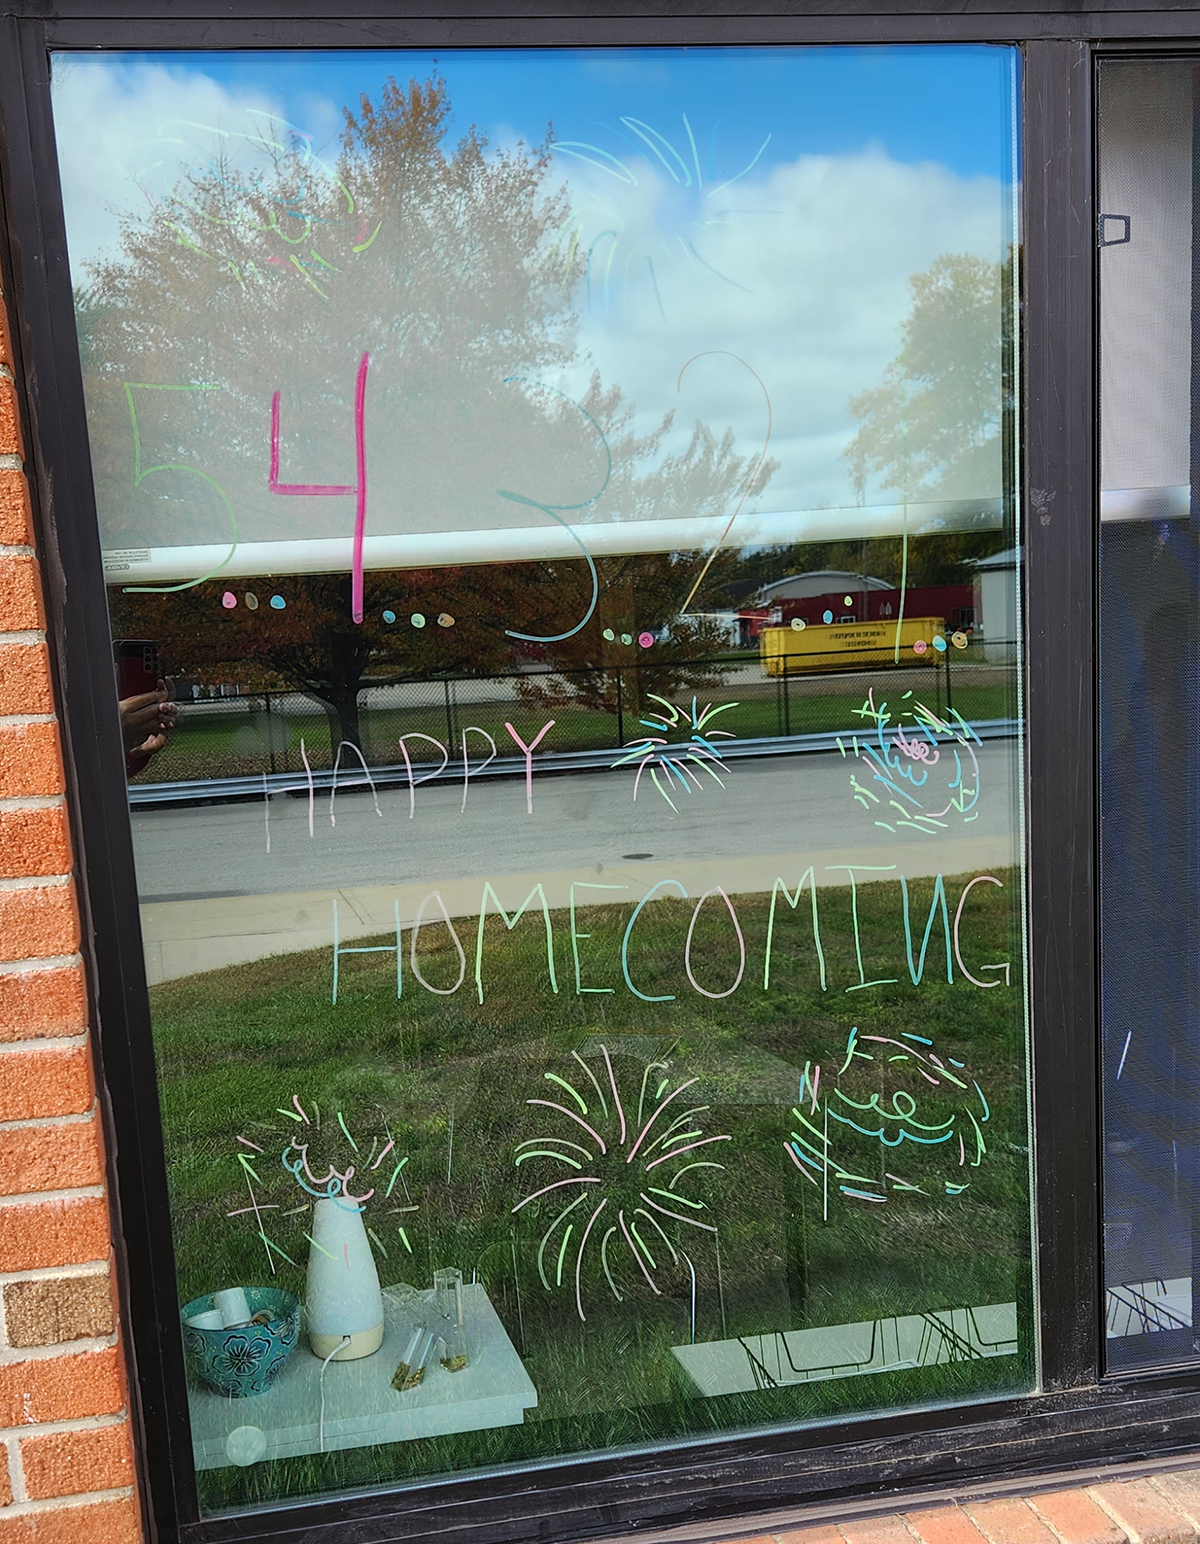 5...4...3...2...1...
HAPPY
HOMECOMING